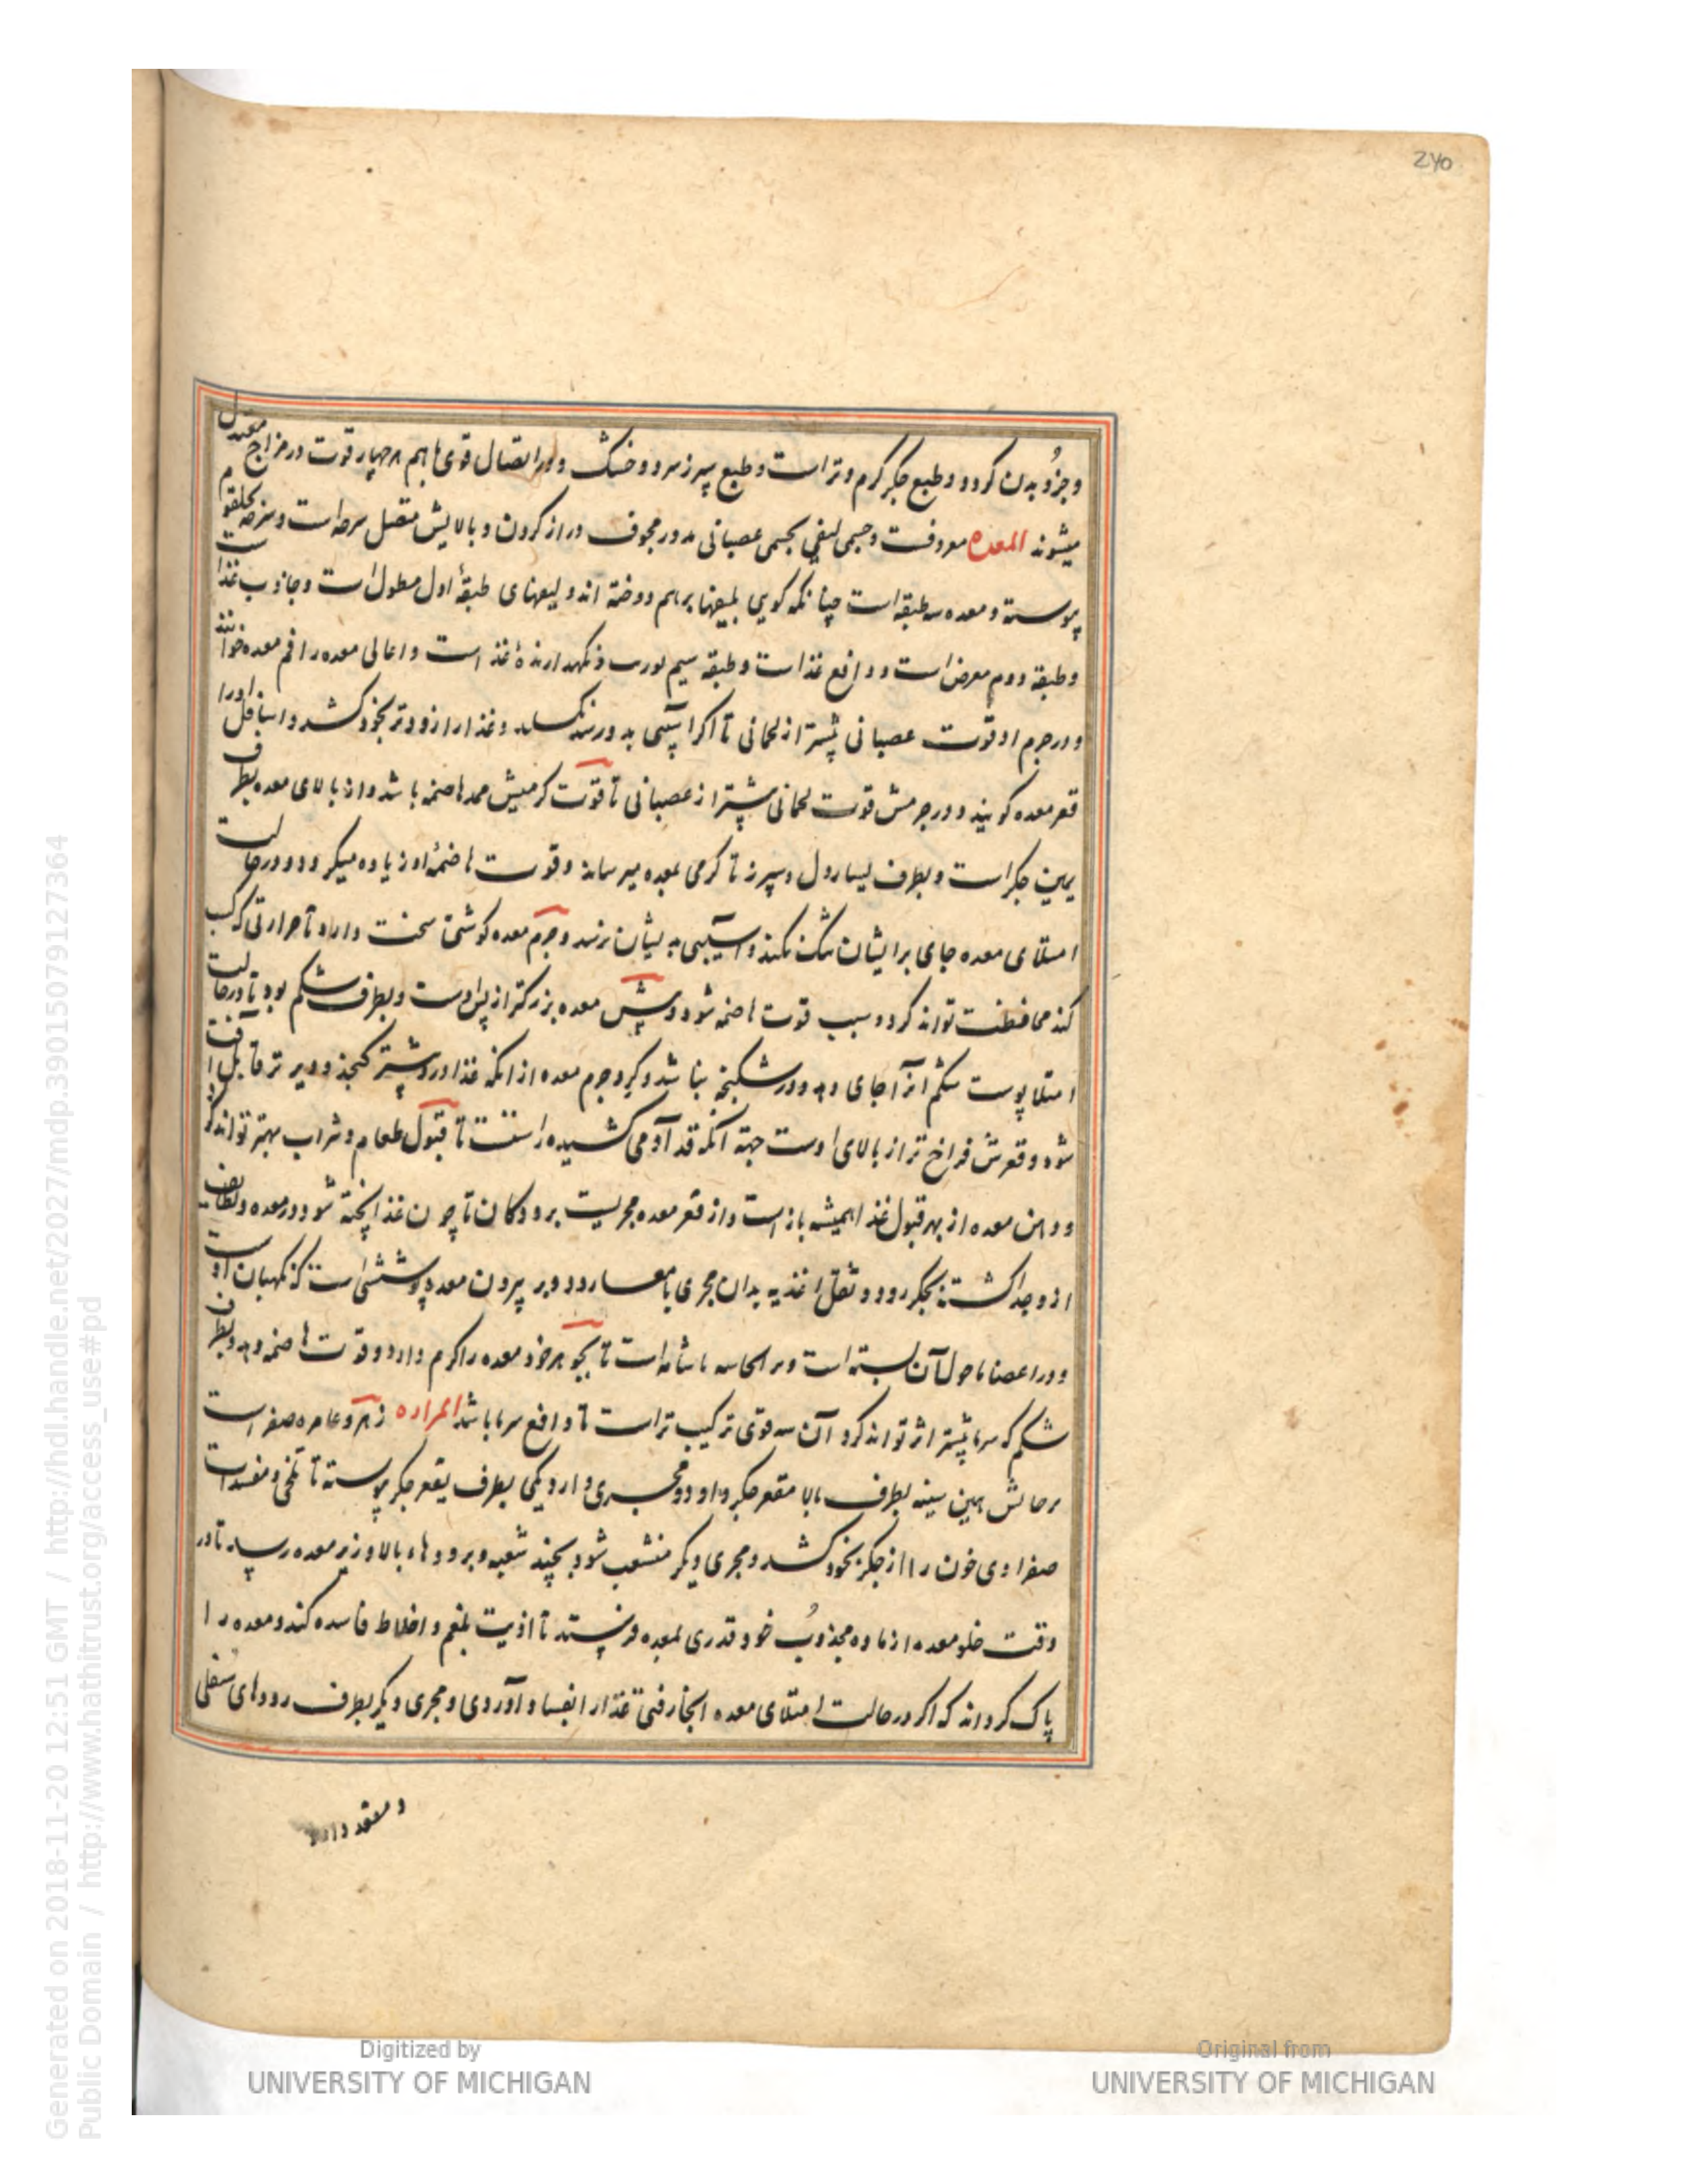 240
وجزو بدن کردد و طبع جکر کرم و تر است و طبع سپرز سرد و خشک و در اتصال قوی باهم هر چهار قوت در مزاج معتدل
میشوند المعده معروفست و جسمی لیفی بجسمی عصبانی مدور مجوف دراز کردن و بالایش متصل سر حلقوم
پیوسته و معده سه طبقه است چنانکه کویی بلیفها برهم دوخته اند و لیفهای طبقۀ اول مطول است و جاذب غذاست
و طبقۀ دوم معرض است و دافع غذاست و طبقه سیم نکهدارندۀ غذا است و اعالی معده را فم معده خوانند
و در جرم او قوت عصبانی پیشتر از لحمانی تا اکر آسیبی بدو رسد نکسلد و غذا را زودتر بخود کشد و اسافل او را
قعر معده کویند و در جرمش قوت لحمانی پیشتر از عصبانی تا قوت کرمیش ممد هاضمه باشد و از بالای معده بطرف
یمین جکر است و بطرف یسار دل و سپرز تا کرمی بمعده میرسانند و قوت هاضمۀ او زیاده میکردد و در حالت
امتلای معده جای برایشان تنک نکند و آسیبی به ایشان نرسد و جرم معده کوشتی سخت دارد تا حرارتی که کسب
کند محافظت تواند کرد و سبب قوت هاضمه شود و پیش معده بزرکتر از پس اوست و بطرف شکم بود تا در حالت
امتلا پوست شکم آنرا جای دهد و در شکنجه نباشد و کرد جرم معده از آنکه غذا درو پیشتر کنجد و دیرتر قابل آفت
شود و قعرش فراخ تر از بالای اوست جهة آنکه قد آدمی کشیده راست تا قبول طعام و شراب بهتر تواند کرد
و دهن معده از بهر قبول غذا همیشه باز است و از قعر معده مجریست برودکان تا چون غذا پخته شود در معده و لطایف
ازو جدا کشته بجکر رود و ثقل اغذیه بدان مجری بامعا رود و بر بیرون معده پوششی است که نکهبان اوست
و در اعضا ما حول آن بسته است تا بجوهر خود معده را کرم دارد و قوت هاضمه دهد و بطرف
شکم که سرما پیشتر اثر تواند کرد آن سه قوی ترکیب تر است تا دافع سرما باشد المراره زهره و عامره صفراست
بر حالش یمین سینه بطرف بالا مقعر جکر و او دو مجری دارد یکی بطرف مقعر جکر پیوسته تا تلخی و مفسدات
صفراوی خون را از جکر بخود کشد و مجری دیکر منشعب شود بچند شعبه و برودهاء بالا و زیر معده رسد تا در
وقت خلو معده از ماده مجذوب خود قدری بمعده فرستد تا اذیت بلغم و اخلاط فاسده کند و معده را
پاک کرداند که اکر در حالت امتلای معده انجا رفتی غذا را بفساد آوردی و مجری دیکر بطرف رودهای سفلی
و مقعد دارد
Generated on 2018-11-20 12:51 GMT / http://hdl.handle.net/2027/mdp.39015079127364
Public Domain / http://www.hathitrust.org/access_use#pd
Digitized by
UNIVERSITY OF MICHIGAN
Original from
UNIVERSITY OF MICHIGAN